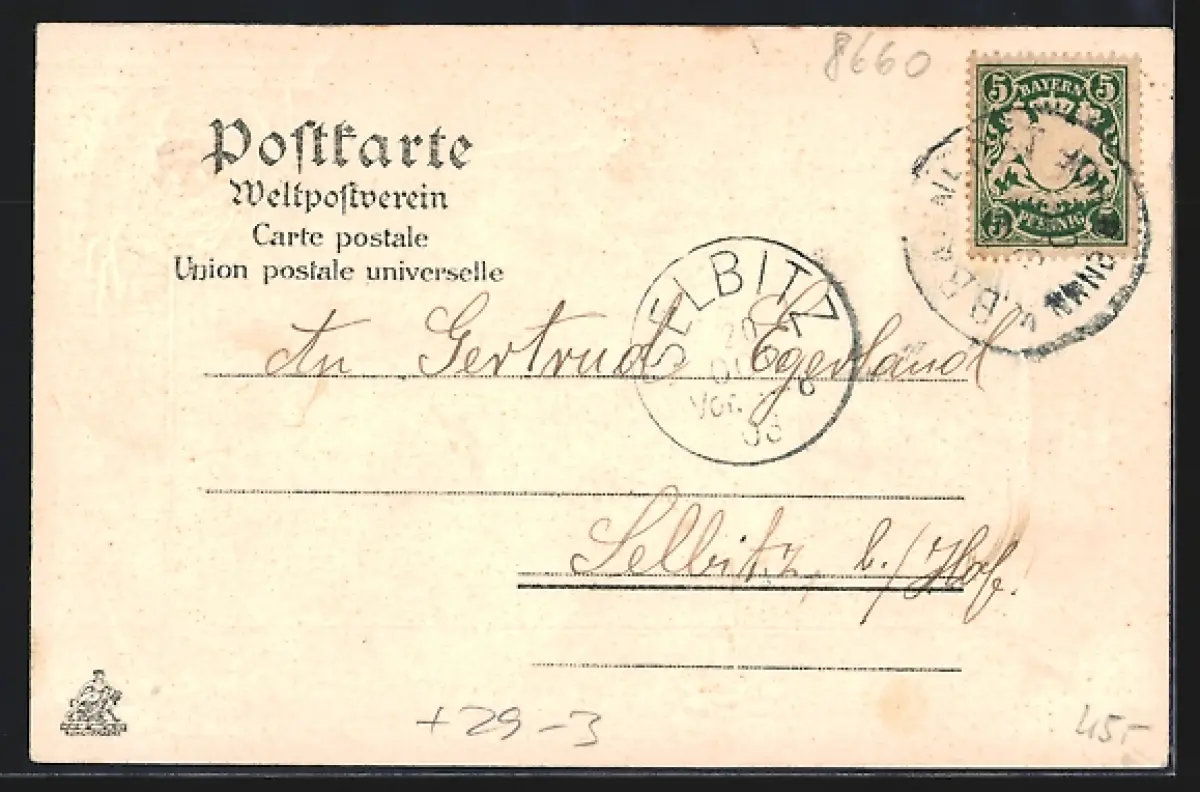 8660
5 BAYERN 5
5 PFENNIG
Postkarte
Weltpostverein
Carte postale
Union postale universelle
SELBITZ
20
Vor.
An Gertrud Egerland
Selbitz, b./Hof.
+29-3
45-